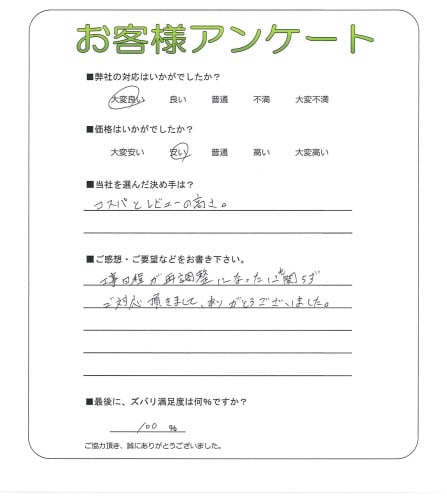 お客様アンケート
■弊社の対応はいかがでしたか？
大変良い 良い 普通 不満 大変不満
■価格はいかがでしたか？
大変安い 安い 普通 高い 大変高い
■当社を選んだ決め手は？
コスパとレビューの高さ。
■ご感想・ご要望などをお書き下さい。
日程が再調整になったにも関らず
ご対応頂きまして、ありがとうございました。
■最後に、ズバリ満足度は何%ですか？
100 %
ご協力頂き、誠にありがとうございました。